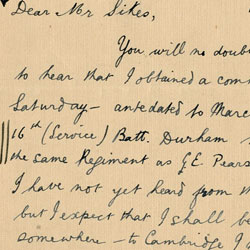 Dear Mr Sikes,
You will no doub
to hear that I obtained a com
Saturday – antedated to Marc
16th (Service) Batt. Durham
the same Regiment as G.E. Pears
I have not yet heard from th
but I expect that I shall be
somewhere – to Cambridge